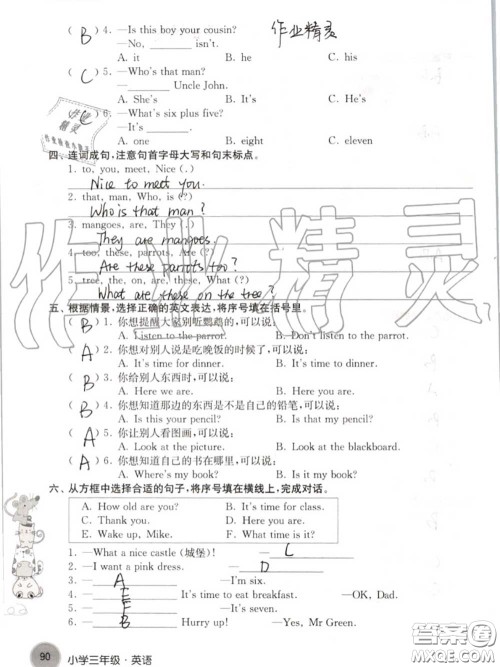 ( B ) 4. —Is this boy your cousin? 作业精灵
—No, ______ isn't.
A. it B. he C. his
( C ) 5. —Who's that man?
—______ Uncle John.
A. She's B. It's C. He's
( C ) 6. —What's six plus five?
—It's ______.
A. one B. eight C. eleven
四、连词成句,注意句首字母大写和句末标点。
1. to, you, meet, Nice (.)
Nice to meet you.
2. that, man, Who, is (?)
Who is that man?
3. mangoes, are, They (.)
They are mangoes.
4. too, these, parrots, Are (?)
Are these parrots too?
5. tree, the, on, are, these, What (?)
What are these on the tree?
五、根据情景,选择正确的英文表达,将序号填在括号里。
( B ) 1. 你想提醒大家别听鹦鹉的,可以说:
A. Listen to the parrot. B. Don't listen to the parrot.
( A ) 2. 你想对别人说是吃晚饭的时候了,可以说:
A. It's time for dinner. B. It's time to dinner.
( B ) 3. 你给别人东西时,可以说:
A. Here we are. B. Here you are.
( B ) 4. 你想知道那边的东西是不是自己的铅笔,可以说:
A. Is this your pencil? B. Is that my pencil?
( A ) 5. 你让别人看图画,可以说:
A. Look at the picture. B. Look at the blackboard.
( A ) 6. 你想知道自己的书在哪里,可以说:
A. Where's my book? B. Is it my book?
六、从方框中选择合适的句子,将序号填在横线上,完成对话。
A. How old are you? B. It's time for school.
C. Thank you. D. Here you are.
E. Wake up, Mike. F. What time is it?
1. —What a nice castle (城堡)! —C
2. —I want a pink dress. —D
3. —A —I'm six.
4. —E It's time to eat breakfast. —OK, Dad.
5. —F —It's seven.
6. —B Hurry up! —Yes, Mr Green.
90 小学三年级·英语
作业精灵
答案圈
MXQE.COM